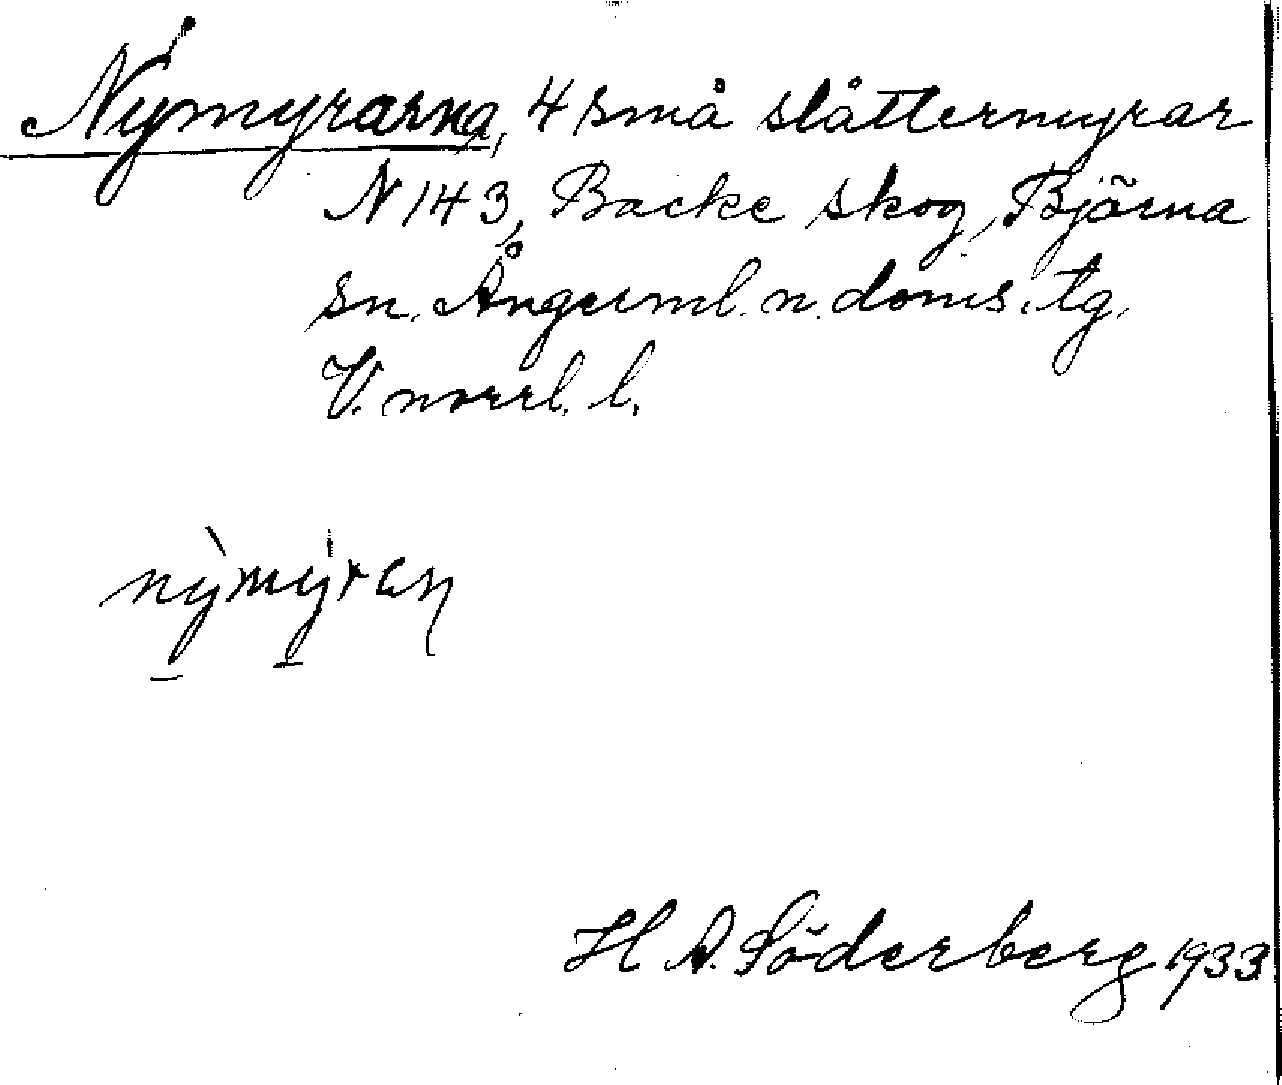 Nymyrarna, 4 små slåttermyrar
N 143, Backe skog, Björna
sn. Ångerml. n. doms. tg.
V. norrl. l.
nỳmýren
H A. Söderberg 1933